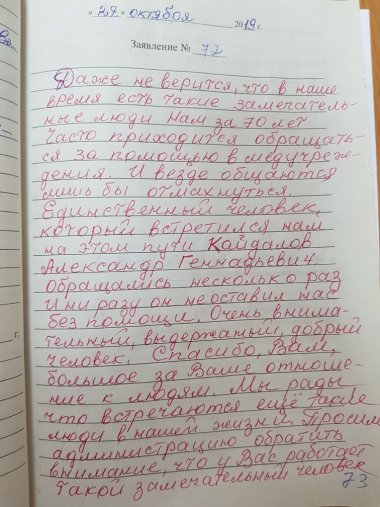 « 29 » октября 2019 г.
Заявление № 72
Даже не верится, что в наше
время есть такие замечатель-
ные люди нам за 70 лет
Часто приходится обращать-
ся за помощью в медучреж-
дения. И везде общаются
лишь бы отмахнуться.
Единственный человек,
который встретился нам
на этом пути Кайдалов
Александр Геннадьевич
обращались несколько раз
И ни разу он не оставил нас
без помощи. Очень внима-
тельный, выдержаный, добрый
человек. Спасибо, Вам,
большое за Ваше отноше-
ние к людям. Мы рады
что встречаются ещё такие
люди в нашей жизни. Просим
администрацию обратить
внимание, что у Вас работает
такой замечательный человек
73
г.